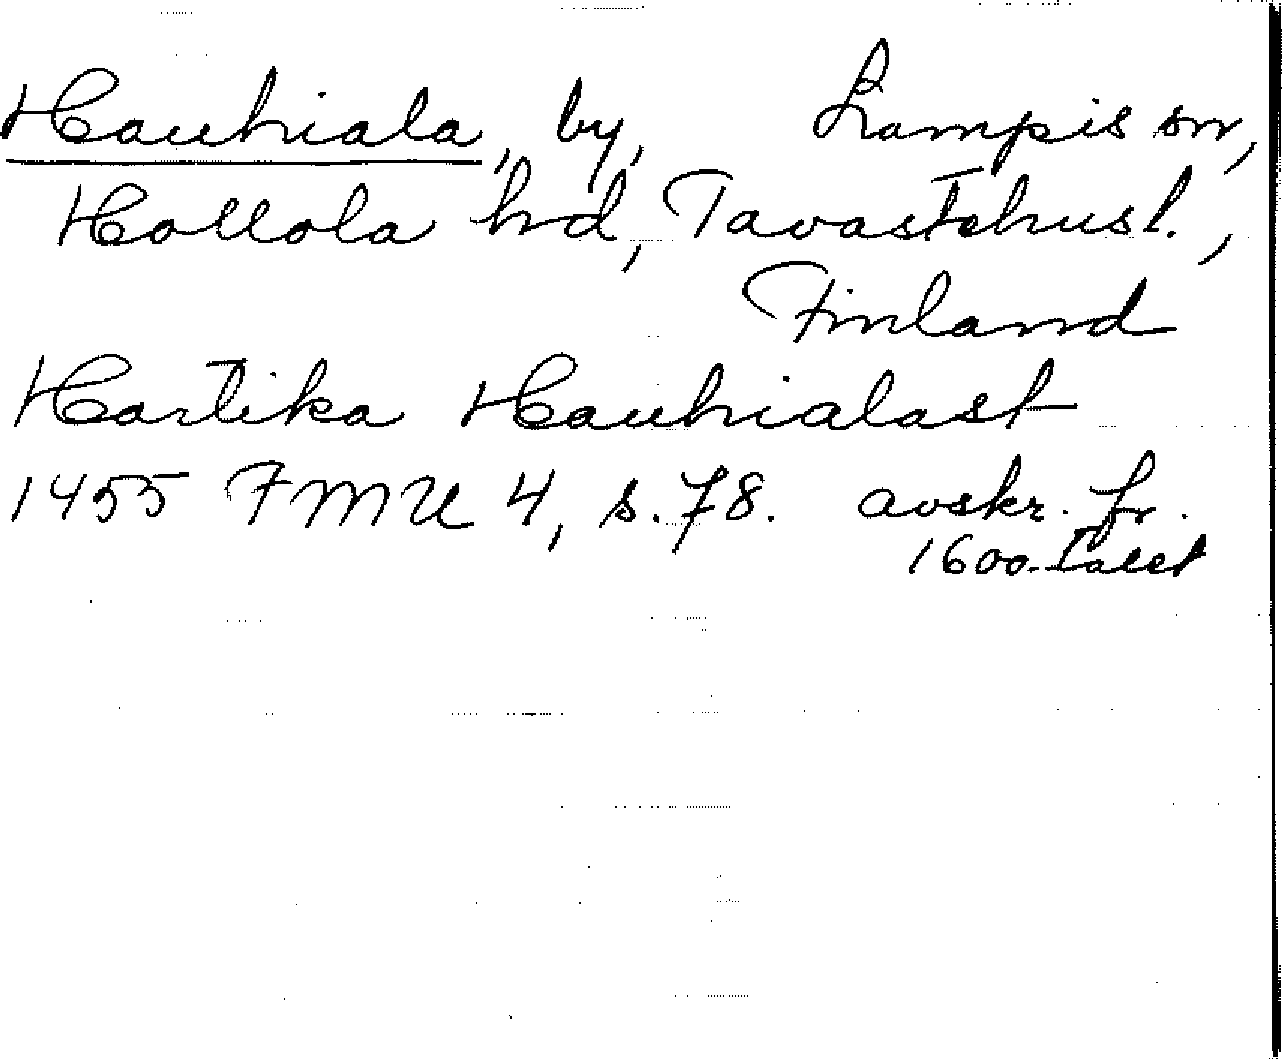 Hauhiala, by, Lampis sn,
Hollola hd, Tavastehus l.,
Finland
Hartika Hauhialast
1455 FMU 4, s. 78. avskr. fr.
1600-talet